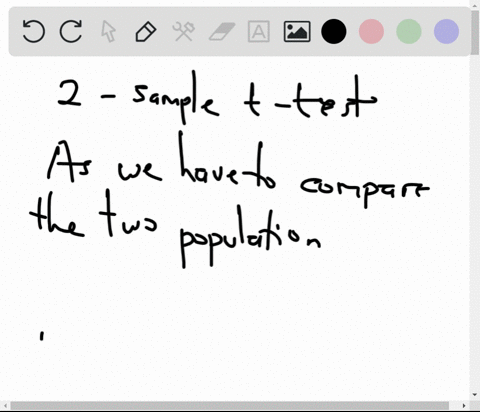 2 - sample t-test
As we have to compare
the two population